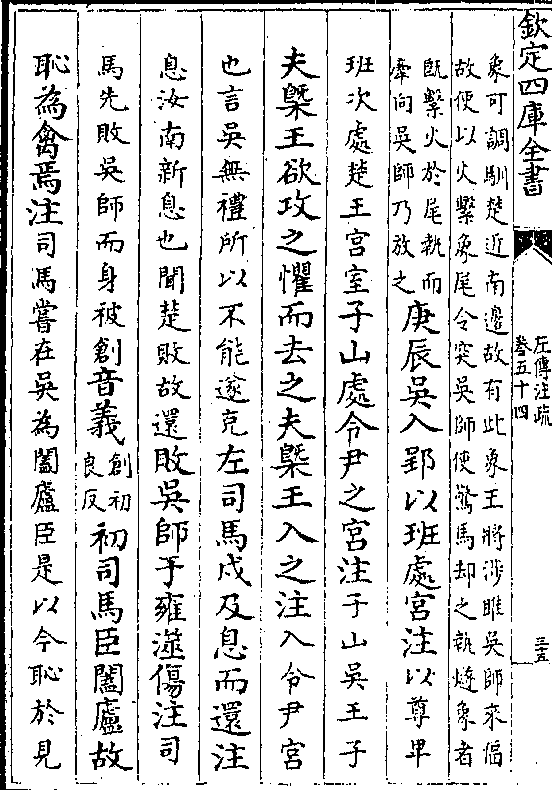 欽定四庫全書
左傳注疏
卷五十四
三五
象可調馴楚近南邊故有此象王將涉睢吳師來偪
故使以火繫象尾令突吳師使驚馬却之執燧象者
既繫火於尾執而
牽向吳師乃放之
庚辰吳入郢以班處宮注以尊卑
班次處楚王宮室子山處令尹之宮注子山吳王子
夫槩王欲攻之懼而去之夫槩王入之注入令尹宮
也言吳無禮所以不能遂克左司馬戌及息而還注
息汝南新息也聞楚敗故還敗吳師于雍澨傷注司
馬先敗吳師而身被創音義
創初
良反
初司馬臣闔廬故
恥為禽焉注司馬嘗在吳為闔廬臣是以今恥於見